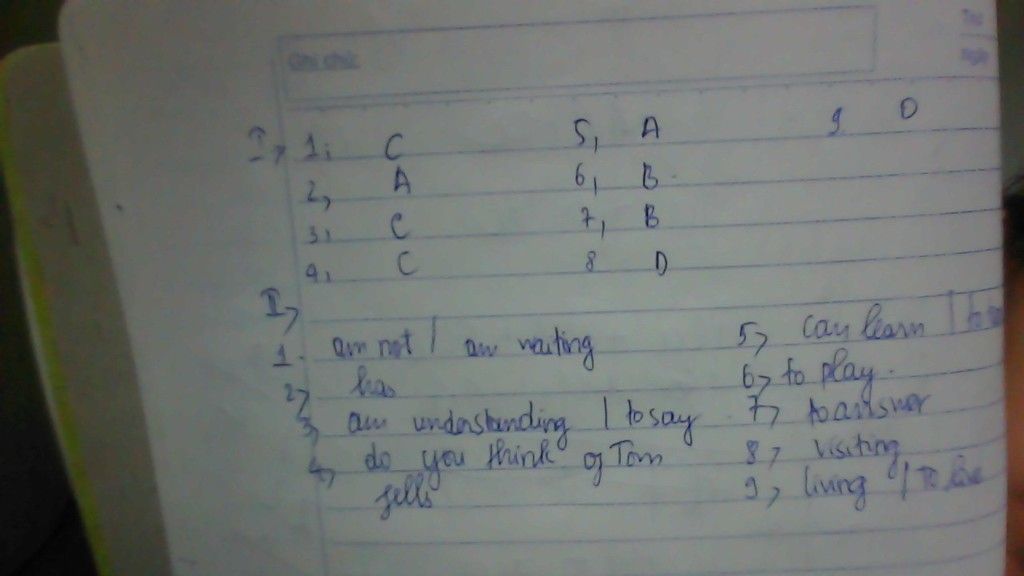 Ghi chú:
Thứ
Ngày
I, 1, C 5, A 9 D
2, A 6, B
3, C 7, B
4, C 8 D
II,
1. am not / am waiting 5, can learn / to
2, has 6, to play.
3, am understanding / to say 7, to answer
4, do you think of Tom 8, visiting
9, living / To live